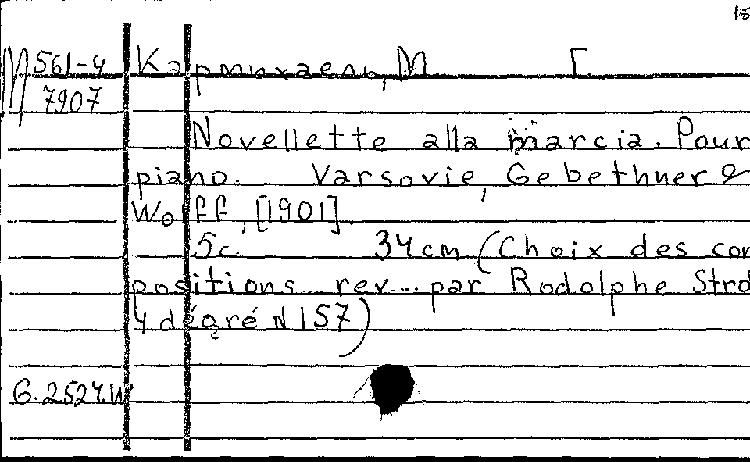 18
М 561-4 Кармихаель, М Г
7907
Novellette alla marcia. Pour
piano. Varsovie, Gebethner &
Wolff, [1901]
5c. 34cm (Choix des com
positions rev. par Rodolphe Stro
4 degré N 157)
G.2527.W